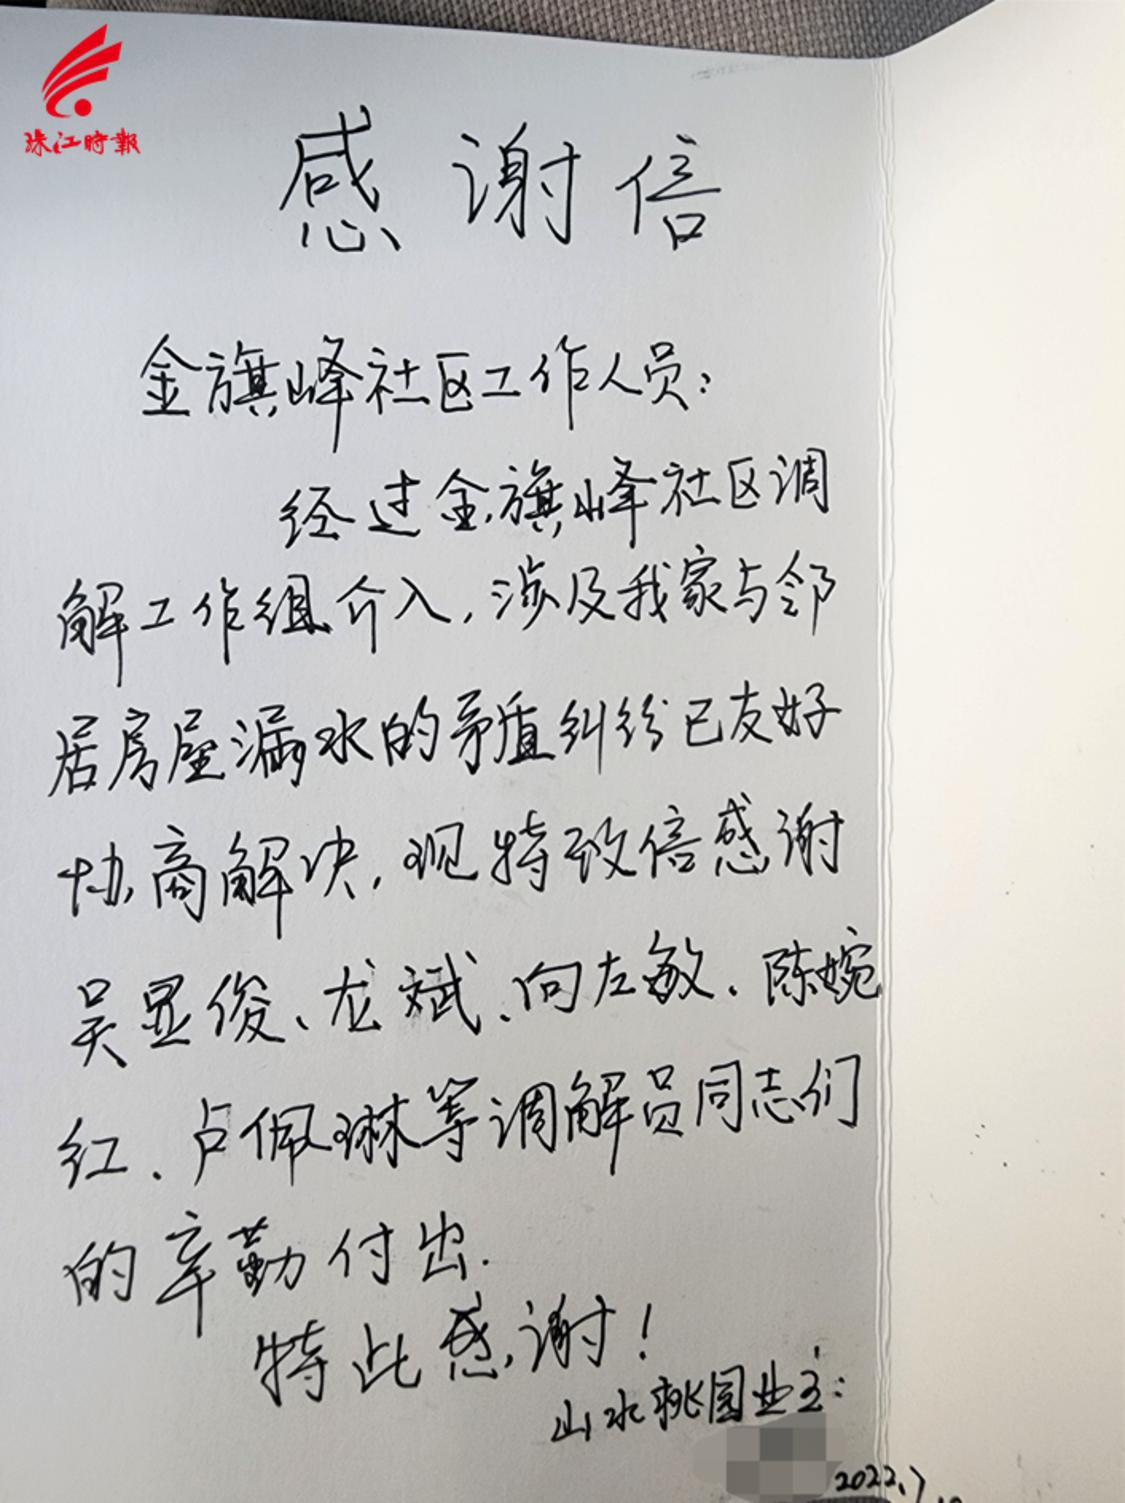 珠江时報
感谢信
金旗峰社区工作人员：
经过金旗峰社区调
解工作组介入，涉及我家与邻
居房屋漏水的矛盾纠纷已友好
协商解决，现特致信感谢
吴显俊、龙斌、向左敏、陈婉
红、卢佩琳等调解员同志们
的辛勤付出.
特此感谢！
山水桃园业主：
2022.7